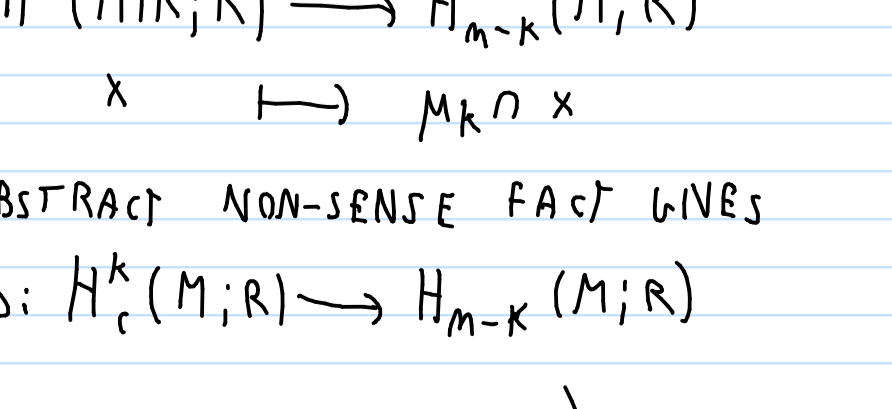 (M|K;R) ⟶ H_{m-k}(M;R)
x ⟼ μ_K ∩ x
BSTRACT NON-SENSE FACT GIVES
: H^k_c (M;R) ⟶ H_{m-k} (M;R)